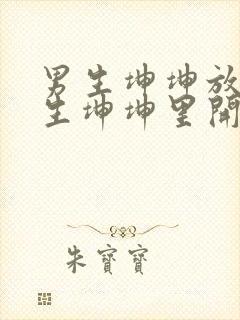 男生坤坤放
生坤坤里開
朱寶寶